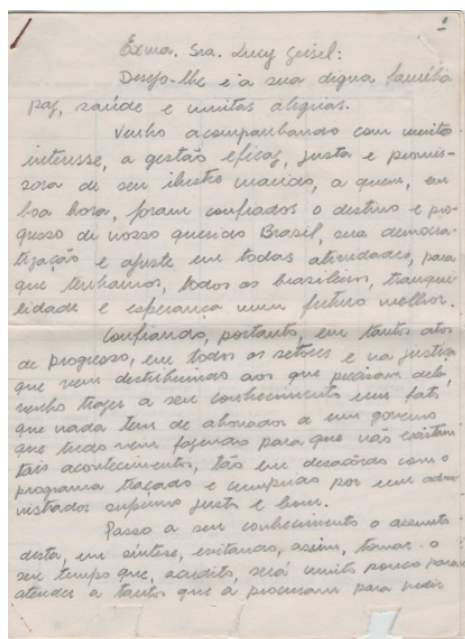 1
Exma. Sra. Lucy Geisel:
Desejo-lhe e à sua digna família
paz, saúde e muitas alegrias.
Venho acompanhando com muito
interesse, a gestão eficaz, justa e promis-
sora de seu ilustre marido, a quem, em
boa hora, foram confiados o destino e pro-
gresso de nosso querido Brasil, sua democra-
tização e ajuste em todas atividades, para
que tenhamos, todos os brasileiros, tranqui-
lidade e esperança num futuro melhor.
Confiando, portanto, em tantos atos
de progresso, em todos os setores e na justiça
que vem distribuindo aos que precisam dela,
venho trazer a seu conhecimento um fato
que nada tem de abonador a um governo
que tudo vem fazendo para que não existam
tais acontecimentos, tão em desacôrdo com o
programa traçado e cumprido por um admi-
nistrador supremo justo e bom.
Passo a seu conhecimento o assunto
desta, em síntese, evitando, assim, tomar o
seu tempo que, acredito, será muito pouco para
atender a tantos que a procuram para pedir